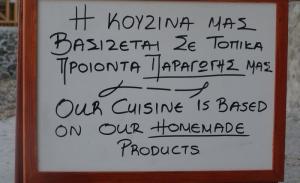 Η ΚΟΥΖΙΝΑ ΜΑΣ
ΒΑΣΙΖΕΤΑΙ ΣΕ ΤΟΠΙΚΑ
ΠΡΟΙΟΝΤΑ ΠΑΡΑΓΩΓΗΣ ΜΑΣ
OUR CUISINE IS BASED
ON OUR HOMEMADE
PRODUCTS